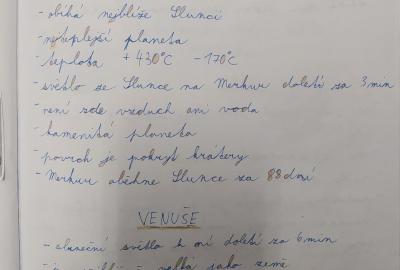 - obíhá nejblíže Slunci
- nejteplejší planeta
- teplota + 430°C - 170°C
- světlo ze Slunce na Merkur doletí za 3 min
- není zde vzduch ani voda
- kamenitá planeta
- povrch je pokryt krátery
- Merkur oběhne Slunce za 88 dní
VENUŠE
- sluneční světlo k ní doletí za 6 min
- velká jako země